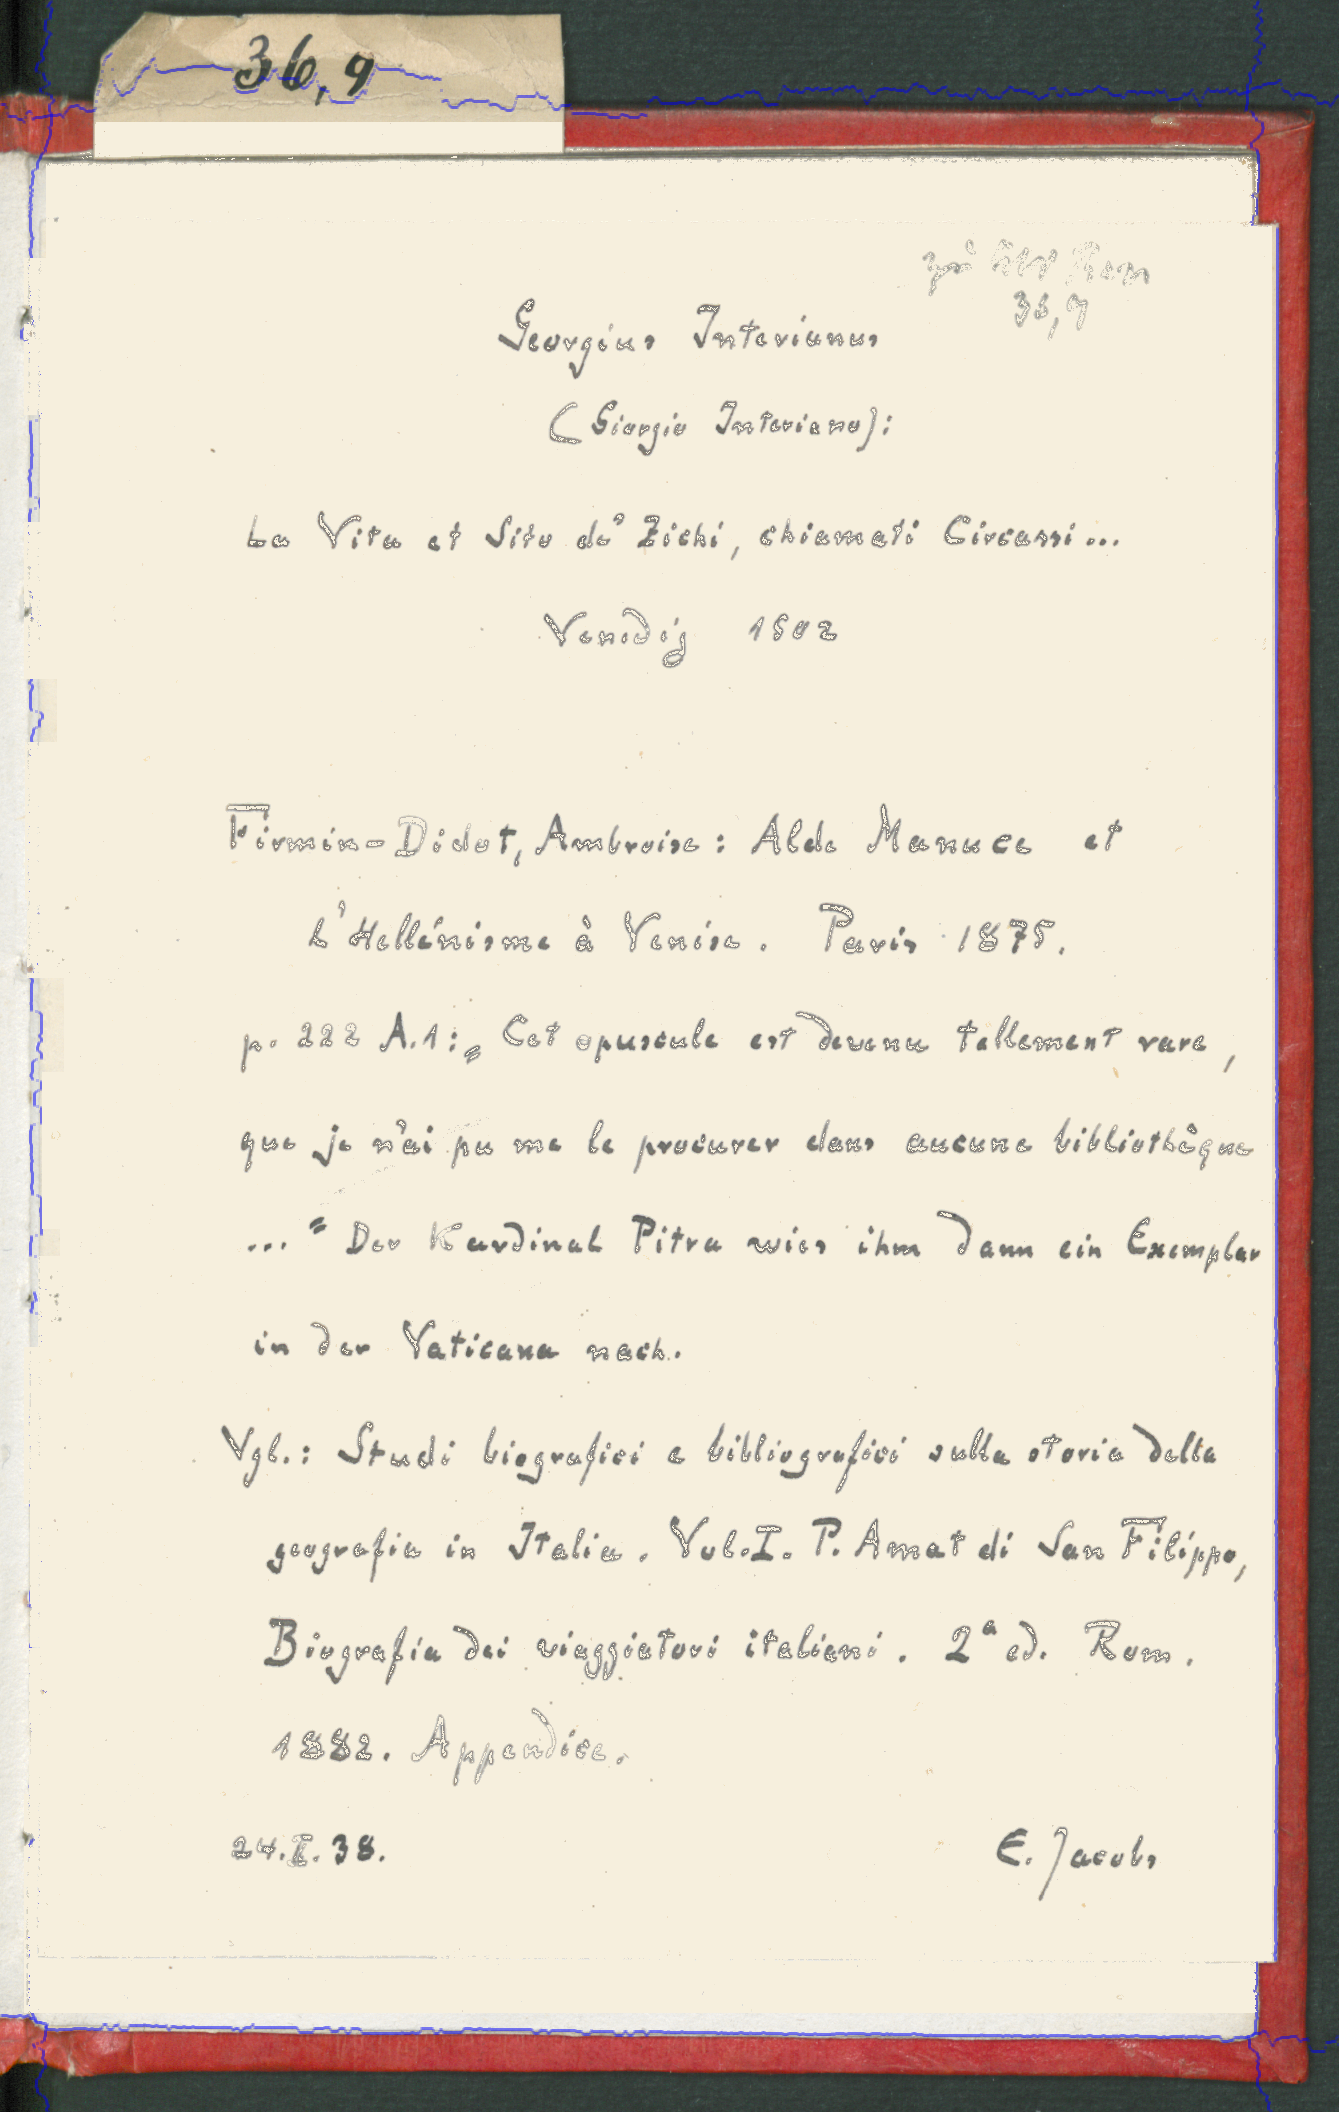 36,9
zu
36,9
Georgius Interianus
(Giorgio Interiano):
La Vita et Sito de' Zichi, chiamati Circassi...
Venedig 1502
Firmin-Didot, Ambroise: Alde Manuce et
L'Hellénisme à Venise. Paris 1875.
p. 222 A.1: „Cet opuscule est devenu tellement rare,
que je n'ai pu me le procurer dans aucune bibliothèque
..." Der Kardinal Pitra wies ihm dann ein Exemplar
in der Vaticana nach.
Vgl.: Studi biografici e bibliografici sulla storia della
geografia in Italia. Vol. I. P. Amat di San Filippo,
Biografia dei viaggiatori italiani. 2a ed. Rom.
1882. Appendice.
24.II.38.
E. Jacobs